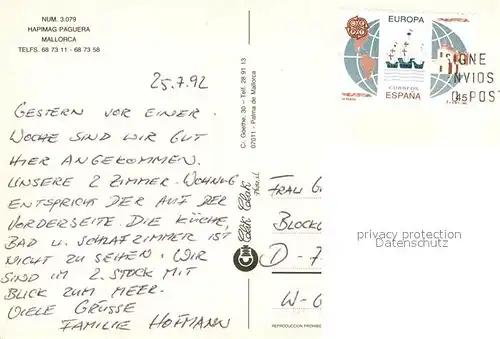 NUM. 3.079
HAPIMAG PAGUERA
MALLORCA
TELFS. 68 73 11 - 68 73 58
25.7.92
GESTERN VOR EINER
WOCHE SIND WIR GUT
HIER ANGEKOMMEN.
UNSERE 2 ZIMMER-WOHNUG
ENTSPRICHT DER AUF DER
VORDERSEITE. DIE KÜCHE,
BAD U. SCHLAFZIMMER IST
NICHT ZU SEHEN. WIR
SIND IM 2. STOCK MIT
BLICK ZUM MEER.
VIELE GRÜSSE
FAMILIE HOFMANN
C/. Goethe, 30 - Telf. 28 91 13
07011 - Palma de Mallorca
REPRODUCCION PROHIBID
EUROPA
CORREOS
ESPAÑA
45
IGNE
NVIOS
POST
FRAU G
BLOCK
D - 7
W - G
privacy protection
Datenschutz